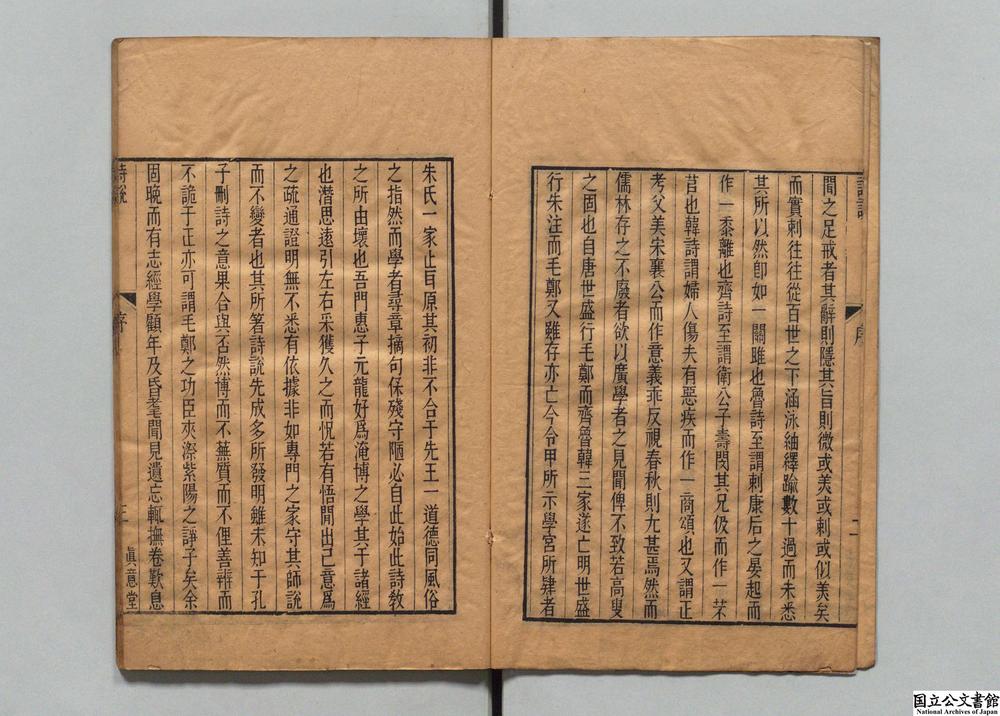 聞之足戒者其辭則隱其旨則微或美或刺或似美矣
而實刺往往從百世之下涵泳紬繹踰數十過而未悉
其所以然卽如一關雎也魯詩至謂刺康后之晏起而
作一黍離也齊詩至謂衛公子壽閔其兄伋而作一芣
苢也韓詩謂婦人傷夫有惡疾而作一商頌也又謂正
考父美宋襄公而作意義乖反視春秋則尢甚焉然而
儒林存之不廢者欲以廣學者之見聞俾不致若高叟
之固也自唐世盛行毛鄭而齊魯韓三家遂亡明世盛
行朱注而毛鄭又雖存亦亡今令甲所示學宮所肄者
朱氏一家止耳原其初非不合于先王一道德同風俗
之指然而學者尋章摘句保殘守陋必自此始此詩敎
之所由壞也吾門惠子元龍好爲淹博之學其于諸經
也潛思遠引左右采獲久之而怳若有悟閒出己意爲
之疏通證明無不悉有依據非如專門之家守其師說
而不變者也其所箸詩說先成多所發明雖未知于孔
子刪詩之意果合與否然博而不蕪質而不俚善辨而
不詭于正亦可謂毛鄭之功臣夾漈紫陽之諍子矣余
固晚而有志經學顧年及昏耄聞見遺忘輒撫卷歎息
詩說
序
三
眞意堂
国立公文書館
National Archives of Japan